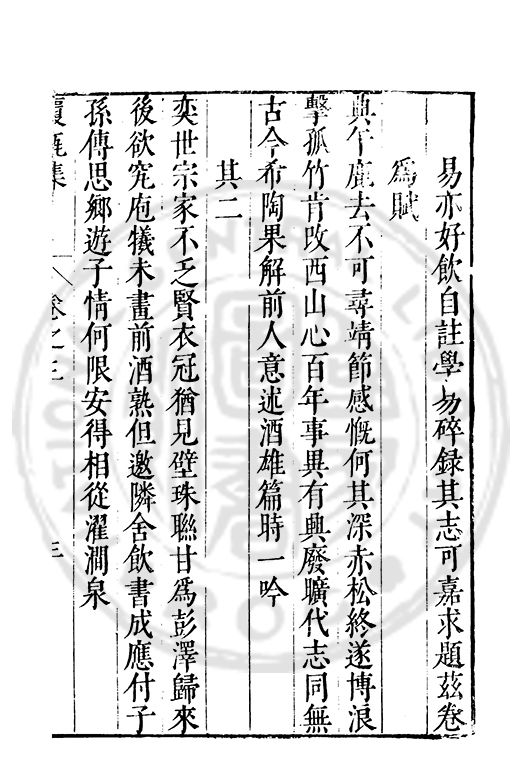 易亦好飲自註學易碎録其志可嘉求題茲卷
為賦
典午鹿去不可尋靖節感慨何其深赤松終遂博浪
擊孤竹肯改西山心百年事異有興廢曠代志同無
古今希陶果解前人意述酒雄篇時一吟
其二
奕世宗家不乏賢衣冠猶見璧珠聯甘為彭澤歸來
後欲究庖犧未畫前酒熟但邀隣舍飲書成應付子
孫傳思鄉遊子情何限安得相從濯澗泉
集 卷之三 三